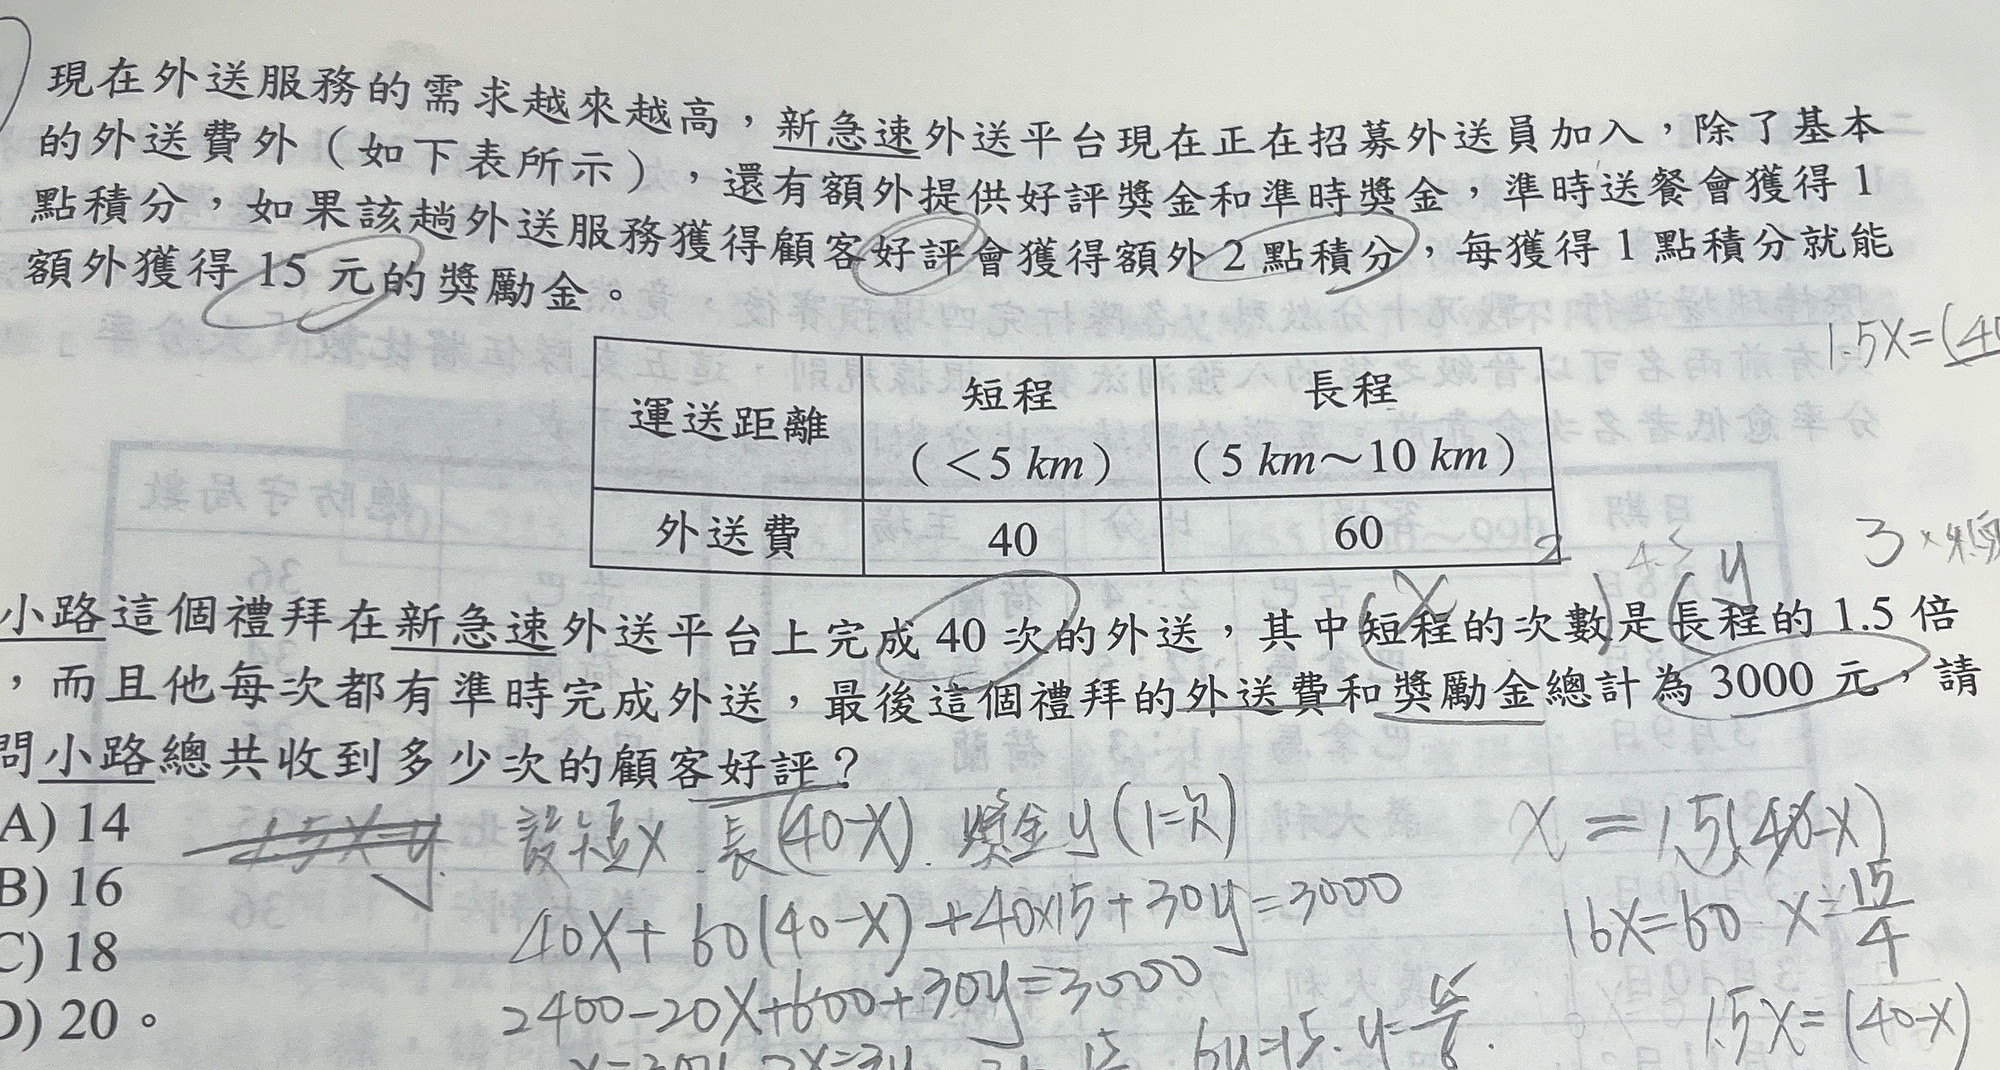 現在外送服務的需求越來越高，新急速外送平台現在正在招募外送員加入，除了基本
的外送費外（如下表所示），還有額外提供好評獎金和準時獎金，準時送餐會獲得1
點積分，如果該趟外送服務獲得顧客好評會獲得額外2點積分，每獲得1點積分就能
額外獲得15元的獎勵金。
1.5X=(40
運送距離
短程
（＜5 km）
長程
（5 km～10 km）
外送費
40
60
3
X
y
小路這個禮拜在新急速外送平台上完成40次的外送，其中短程的次數是長程的1.5倍
，而且他每次都有準時完成外送，最後這個禮拜的外送費和獎勵金總計為3000元，請
問小路總共收到多少次的顧客好評？
A) 14
B) 16
C) 18
D) 20。
1.5X=y
設短X 長(40-X). 獎金y(1=次)
40X+60(40-X)+40x15+30y=3000
2400-20X+600+30y=3000
6y=15. y=
X=1.5(40-X)
16X=60 X=15/4
1.5X=(40-X)